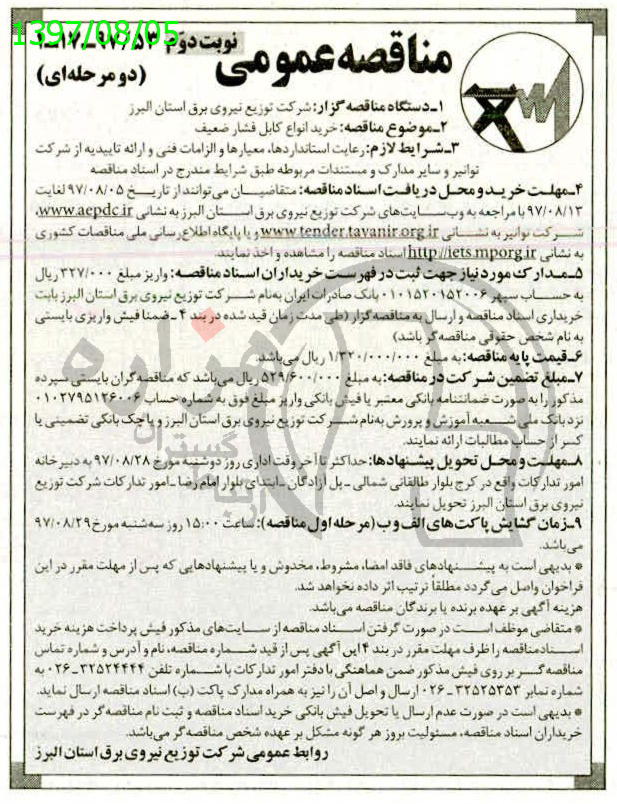 1397/08/05
نوبت دوم ۹۷/۵۳-۱۷-۱
مناقصه عمومی
(دو مرحله‌ای)
۱-دستگاه مناقصه گزار: شرکت توزیع نیروی برق استان البرز
۲-موضوع مناقصه: خرید انواع کابل فشار ضعیف
۳-شرایط لازم: رعایت استانداردها، معیارها و الزامات فنی و ارائه تاییدیه از شرکت
توانیر و سایر مدارک و مستندات مربوطه طبق شرایط مندرج در اسناد مناقصه
۴-مهلت خرید و محل دریافت اسناد مناقصه: متقاضیان می‌توانند از تاریخ ۹۷/۰۸/۰۵ لغایت
۹۷/۰۸/۱۳ با مراجعه به وب‌سایت‌های شرکت توزیع نیروی برق استان البرز به نشانی www.aepdc.ir،
شرکت توانیر به نشانی www.tender.tavanir.org.ir و یا پایگاه اطلاع رسانی ملی مناقصات کشوری
به نشانی http://iets.mporg.ir اسناد مناقصه را مشاهده و اخذ نمایند.
۵-مدارک مورد نیاز جهت ثبت در فهرست خریداران اسناد مناقصه: واریز مبلغ ۳۲۷/۰۰۰ ریال
به حساب سپهر ۰۱۰۱۵۲۰۱۵۲۰۰۶ بانک صادرات ایران به‌نام شرکت توزیع نیروی برق استان البرز بابت
خریداری اسناد مناقصه و ارسال به مناقصه گزار (طی مدت زمان قید شده در بند ۴ -ضمنا فیش واریزی بایستی
به نام شخص حقوقی مناقصه‌گر باشد)
۶-قیمت پایه مناقصه: به مبلغ ۱/۳۲۰/۰۰۰/۰۰۰ ریال می‌باشد.
۷-مبلغ تضمین شرکت در مناقصه: به مبلغ ۵۲۹/۶۰۰/۰۰۰ ریال می‌باشد که مناقصه‌گران بایستی سپرده
مذکور را به صورت ضمانتنامه بانکی معتبر یا فیش بانکی واریز مبلغ فوق به شماره حساب ۰۱۰۲۷۹۵۱۲۶۰۰۶
نزد بانک ملی شعبه آموزش و پرورش به‌نام شرکت توزیع نیروی برق استان البرز و یا چک بانکی تضمینی یا
کسر از حساب مطالبات ارائه نمایند.
۸-مهلت و محل تحویل پیشنهادها: حداکثر تا آخر وقت اداری روز دوشنبه مورخ ۹۷/۰۸/۲۸ به دبیرخانه
امور تدارکات واقع در کرج بلوار طالقانی شمالی -پل آزادگان -ابتدای بلوار امام رضا -امور تدارکات شرکت توزیع
نیروی برق استان البرز تحویل نمایند.
۹-زمان گشایش پاکت‌های الف و ب (مرحله اول مناقصه): ساعت ۱۵:۰۰ روز سه‌شنبه مورخ ۹۷/۰۸/۲۹
می‌باشد.
* بدیهی است به پیشنهادهای فاقد امضا، مشروط، مخدوش و یا پیشنهادهایی که پس از مهلت مقرر در این
فراخوان واصل می‌گردد مطلقاً ترتیب اثر داده نخواهد شد.
هزینه آگهی بر عهده برنده یا برندگان مناقصه می‌باشد.
* متقاضی موظف است در صورت گرفتن اسناد مناقصه از سایت‌های مذکور فیش پرداخت هزینه خرید
اسناد مناقصه را ظرف مهلت مقرر در بند ۴ این آگهی پس از قید شماره مناقصه، نام و آدرس و شماره تماس
مناقصه‌گر بر روی فیش مذکور ضمن هماهنگی با دفتر امور تدارکات با شماره تلفن ۳۲۵۲۴۴۴۴-۰۲۶ به
شماره نمابر ۳۲۵۲۵۳۵۳-۰۲۶ ارسال و اصل آن را نیز به همراه مدارک پاکت (ب) اسناد مناقصه ارسال نماید.
* بدیهی است در صورت عدم ارسال یا تحویل فیش بانکی خرید اسناد مناقصه و ثبت نام مناقصه‌گر در فهرست
خریداران اسناد مناقصه، مسئولیت بروز هر گونه مشکل بر عهده شخص مناقصه‌گر می‌باشد.
روابط عمومی شرکت توزیع نیروی برق استان البرز